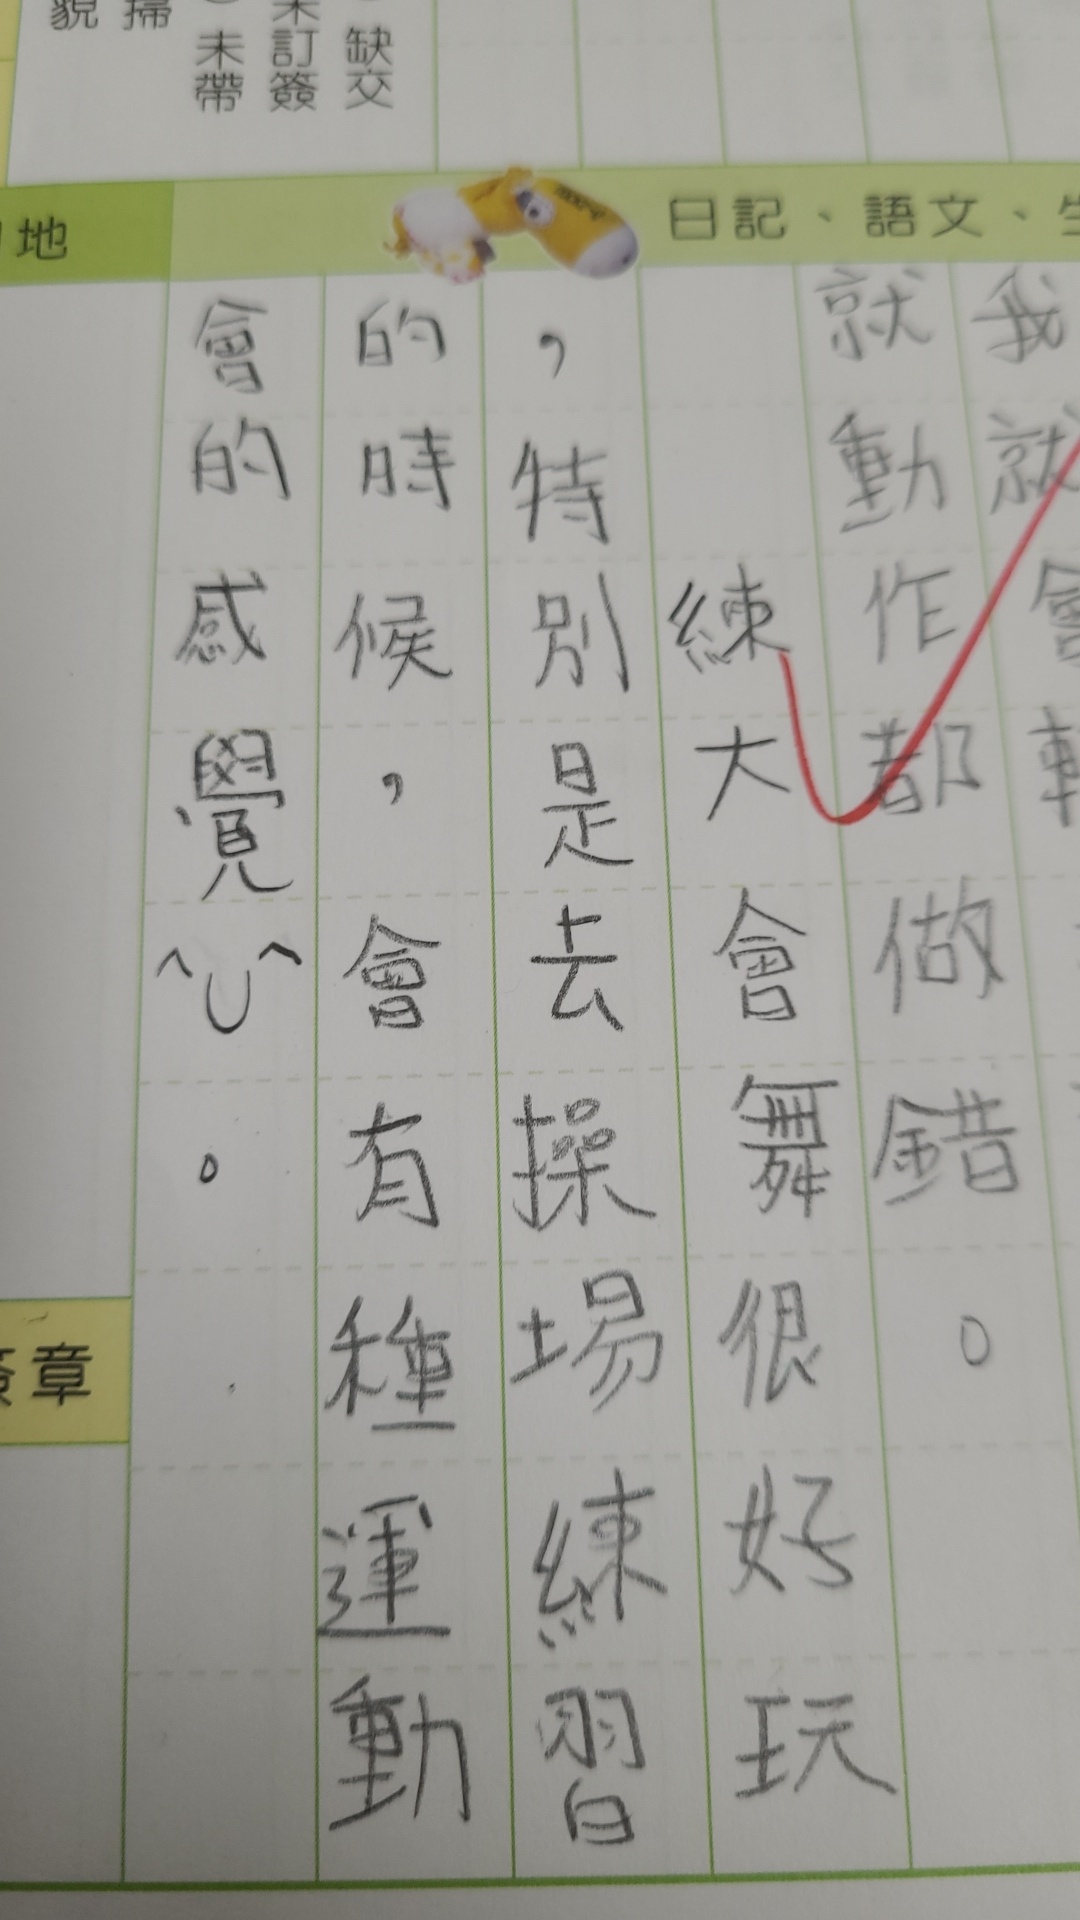 缺交
未訂簽
未帶
掃
貌
日記、語文、生
地
我就會
就動作都做錯。
練大會舞很好玩
，特別是去操場練習
的時候，會有種運動
會的感覺^U^。
章